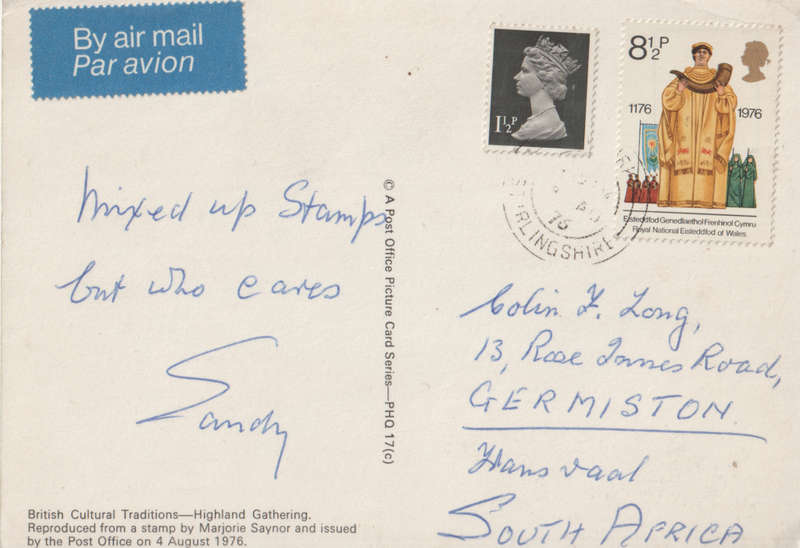 By air mail
Par avion
1½P
8½P
1176 1976
Eisteddfod Genedlaethol Frenhinol Cymru
Royal National Eisteddfod of Wales
RLINGSHIRE
Mixed up Stamps
but who cares
Sandy
© A Post Office Picture Card Series—PHQ 17(c)
Colin F. Long,
13, Rose Innes Road,
GERMISTON
Transvaal
SOUTH AFRICA
British Cultural Traditions—Highland Gathering.
Reproduced from a stamp by Marjorie Saynor and issued
by the Post Office on 4 August 1976.